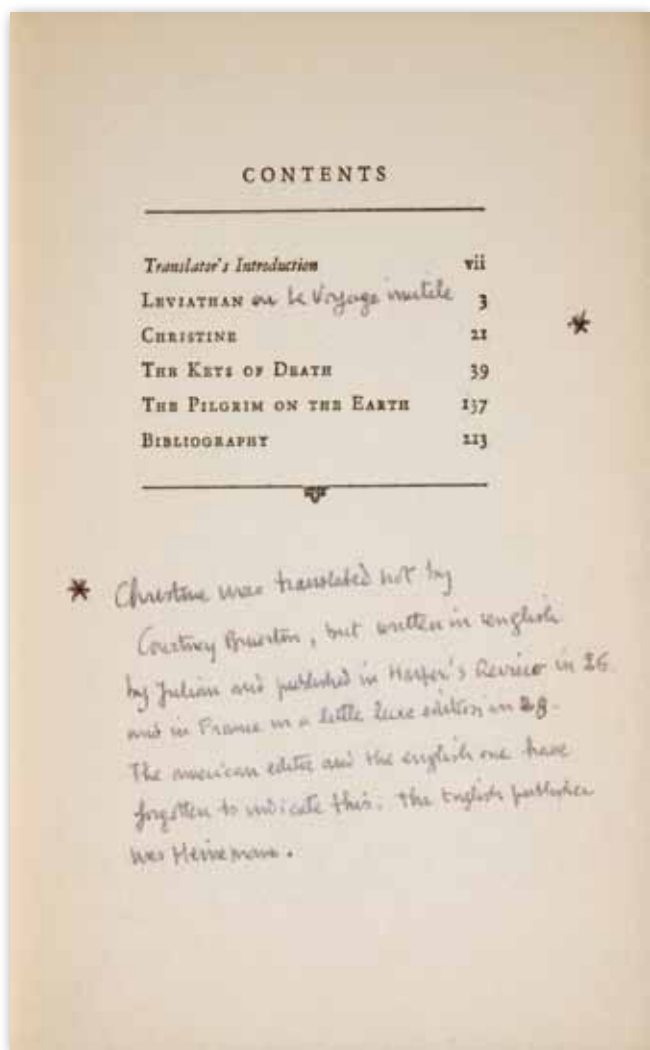 CONTENTS
Translator's Introduction vii
LEVIATHAN ou le Voyage inutile 3
*
CHRISTINE 21
THE KEYS OF DEATH 39
THE PILGRIM ON THE EARTH 137
BIBLIOGRAPHY 213
* Christine was translated not by
Courtney Bruerton, but written in english
by Julian and published in Harper's Review in 26
and in France in a little luxe edition in 28.
The american editor and the english one have
forgotten to indicate this. The English publisher
was Heinemann.